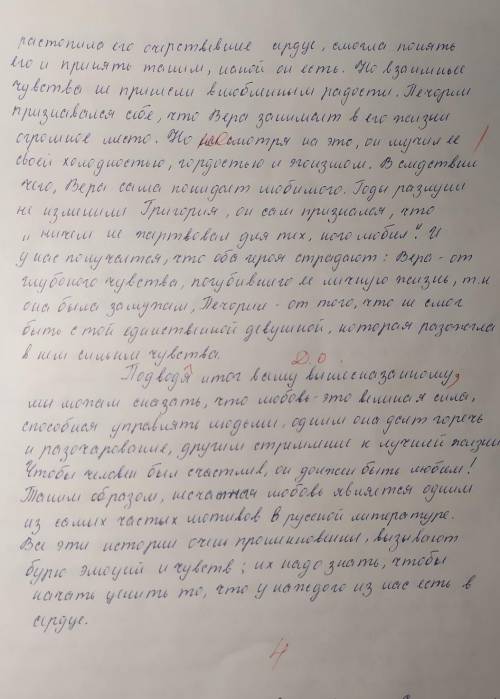 растопила его очерствевшее сердце, смогла понять
его и принять таким, какой он есть. Но взаимные
чувства не принесли влюбленным радости. Печорин
признавался себе, что Вера занимает в его жизни
огромное место. Но несмотря на это, он мучил ее
своей холодностью, гордостью и эгоизмом. В следствии
чего, Вера сама покидает любимого. Годы разлуки
не изменили Григория, он сам признался, что
„ничем не жертвовал для тех, кого любил". И
у нас получается, что оба героя страдают: Вера - от
глубокого чувства, погубившего ее личную жизнь, т.к
она была замужем, Печорин - от того, что не смог
быть с той единственной девушкой, которая разожгла
в нем сильные чувства.
Д.О.
Подводя итог всему вышесказанному,
мы можем сказать, что любовь - это великая сила,
способная управлять людьми, одним она дает горечь
и разочарование, другим стремление к лучшей жизни
Чтобы человек был счастлив, он должен быть любим!
Таким образом, несчастная любовь является одним
из самых частых мотивов в русской литературе.
Все эти истории очень проникновенны, вызывают
бурю эмоций и чувств; их надо знать, чтобы
начать ценить то, что у каждого из нас есть в
сердце.
4